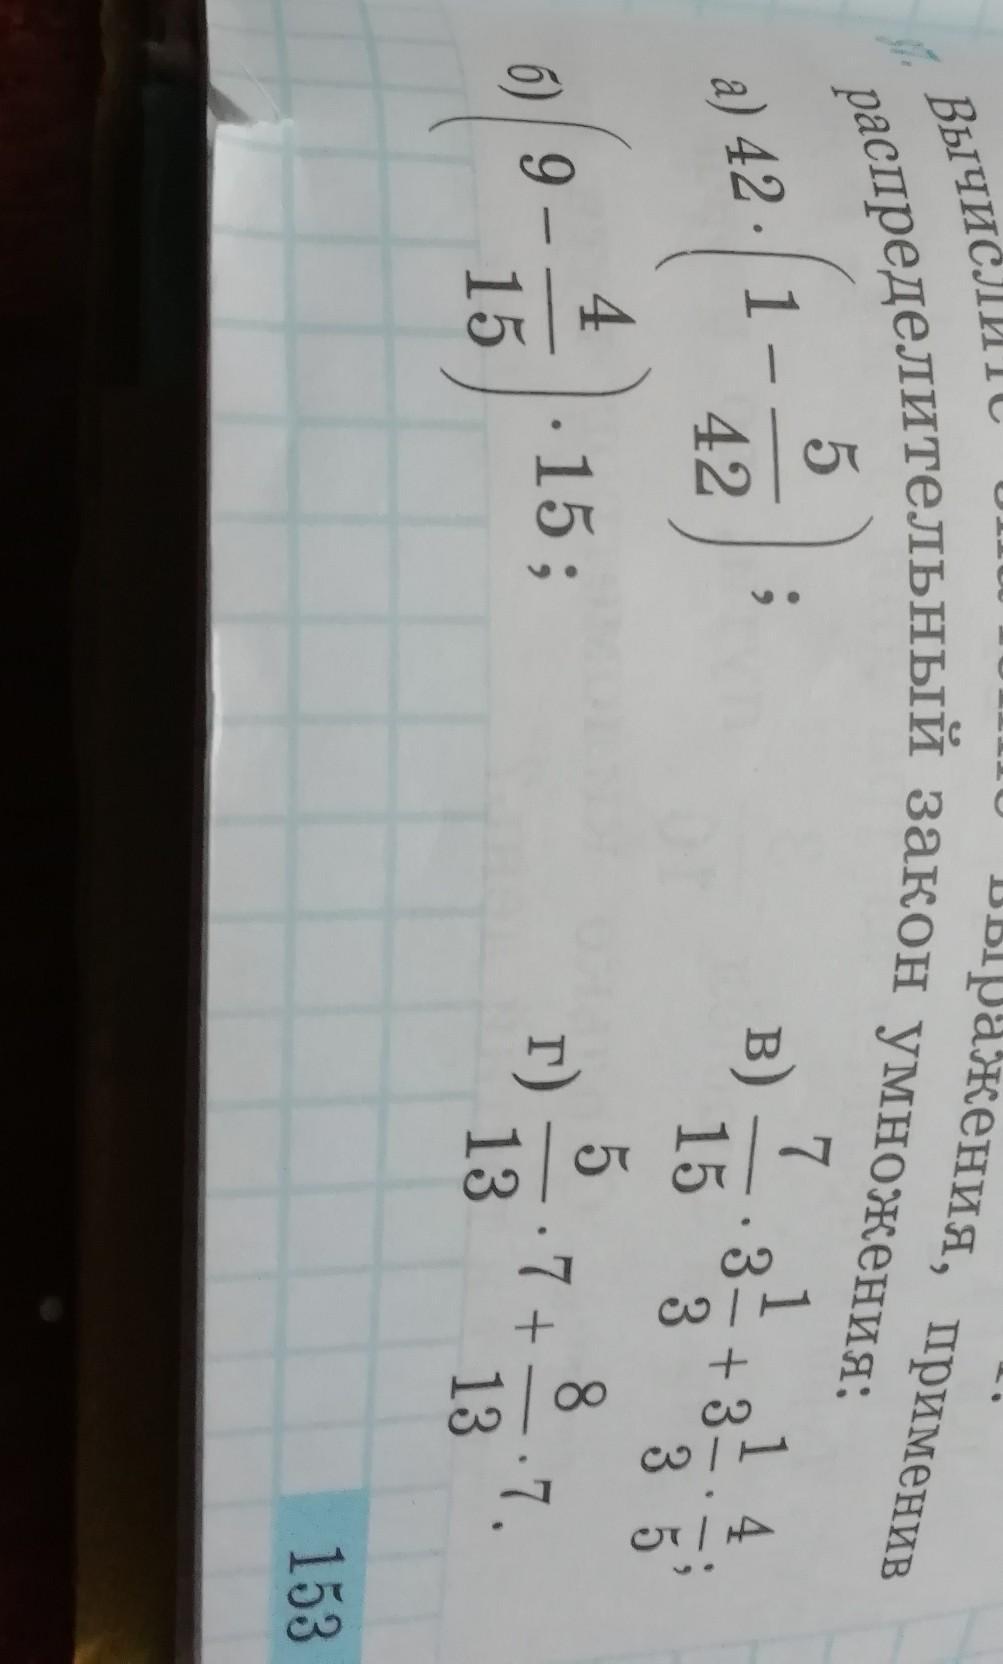 Вычислите значение выражения, применив
распределительный закон умножения:
а) 42 · (1 − 5/42); в) 7/15 · 3 1/3 + 3 1/3 · 4/5;
б) (9 − 4/15) · 15; г) 5/13 · 7 + 8/13 · 7.
153